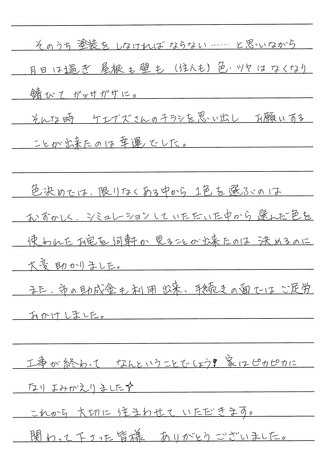 そのうち塗装をしなければならない……と思いながら
月日は過ぎ 屋根も壁も (住人も) 色・ツヤはなくなり
錆びて ガッサガサに。
そんな時 ケエプズさんのチラシを思い出し お願いする
ことが出来たのは幸運でした。
色決めでは、限りなくある中から 1色を選ぶのは
むずかしく、シミュレーションしていただいた中から 選んだ色を
使われたお宅を何軒か 見ることが出来たのは 決めるのに
大変助かりました。
また、市の助成金も利用出来、手続きの面ではご足労
おかけしました。
工事が終わって なんということでしょう! 家はピカピカに
なりよみがえりました
これから大切に 住まわせて いただきます。
関わって下さった皆様 ありがとうございました。